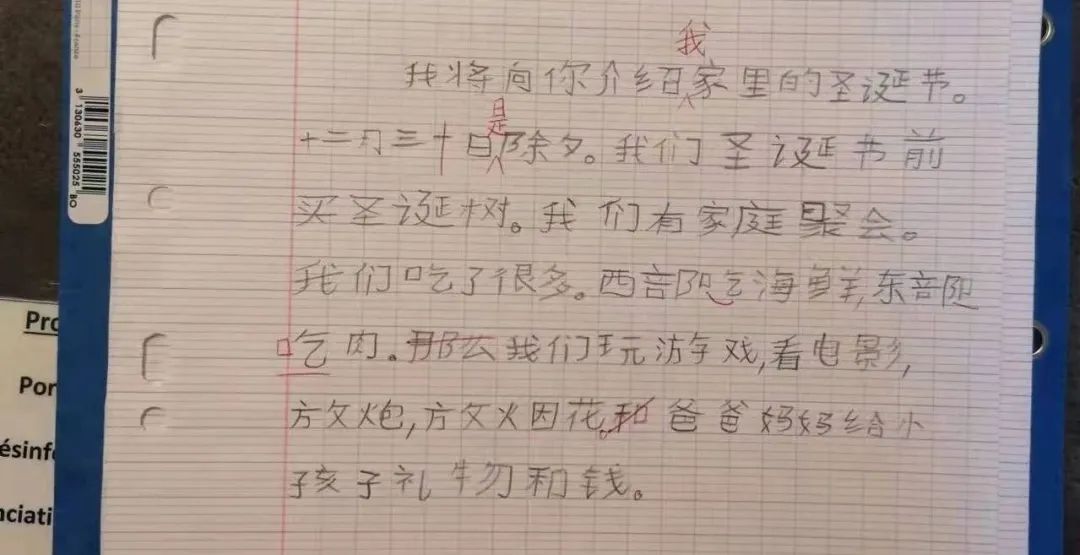 我
我将向你介绍家里的圣诞节。
是
十二月三十日除夕。我们圣诞节前
买圣诞树。我们有家庭聚会。
我们吃了很多。西部吃海鲜,东部
吃肉。那么我们玩游戏,看电影,
放炮,放烟花。和爸爸妈妈给小
孩子礼物和钱。
3 130630 555025 BO
Pro
Por
ésinfe
nciati